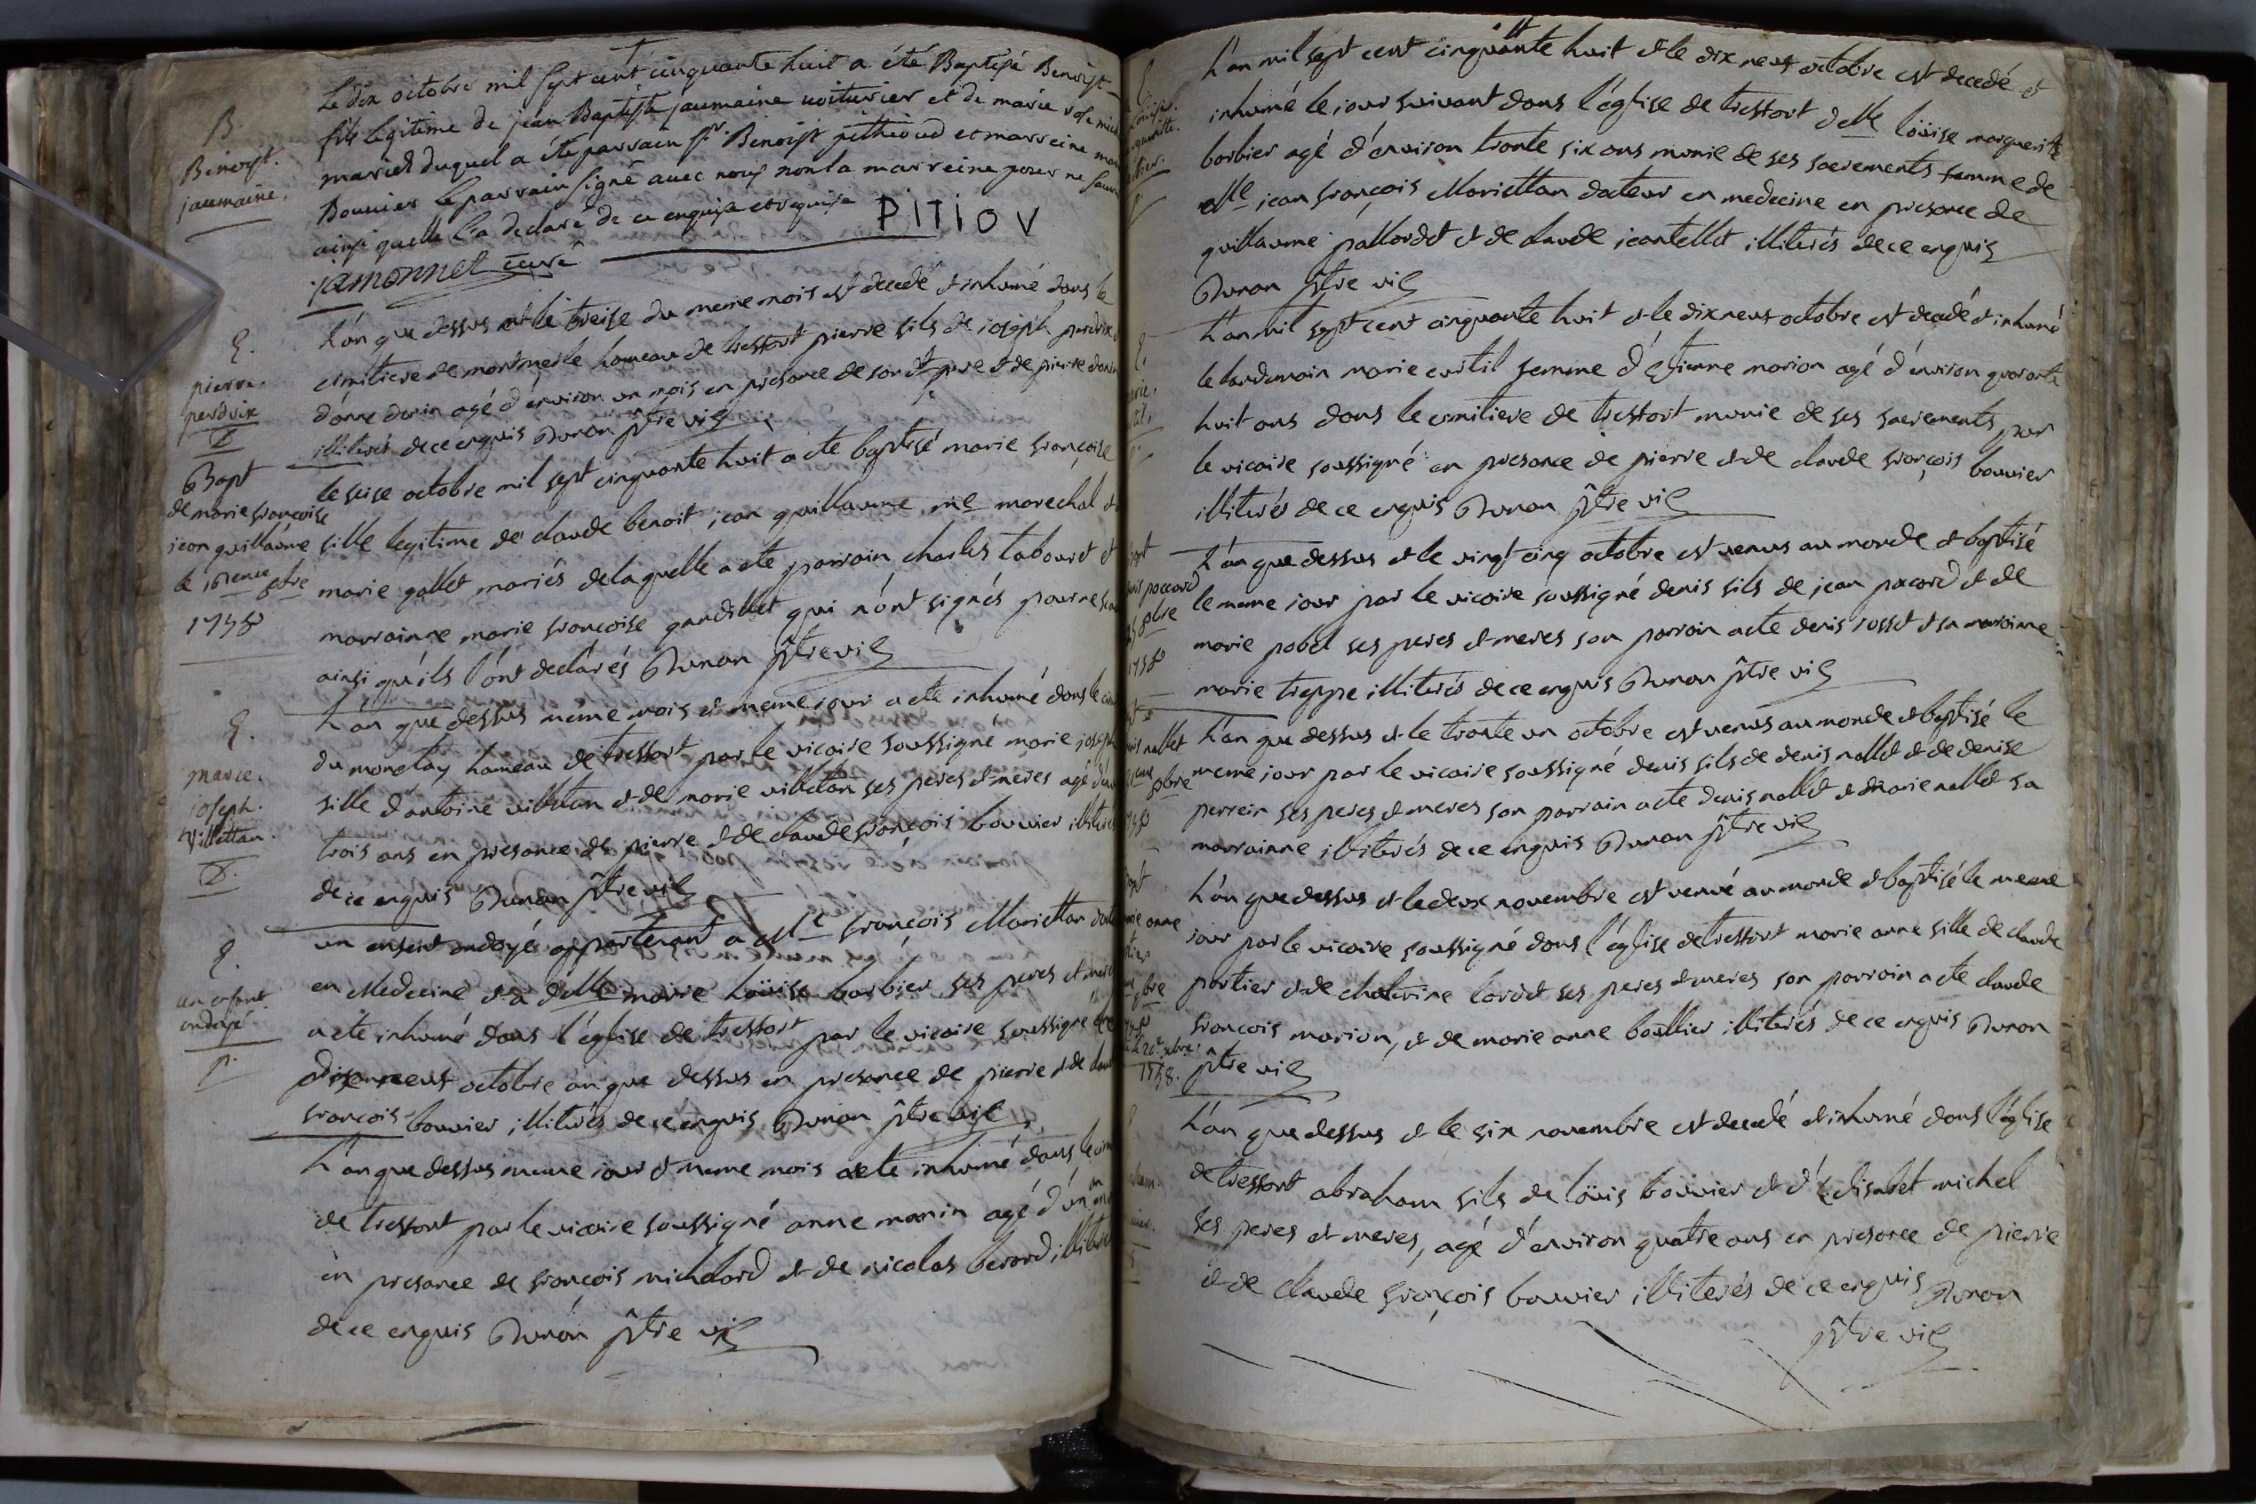 Le dix octobre mil sept cent cinquante huit a été Baptisé Benoist
fils legitime de jean Baptiste jaumaine voiturier et de marie rose
mariés duquel a été parrain Sr. Benoist pithioud et marreine
Bouvier le parrain signé avec nous non la marreine pour ne
ainsi quelle l'a declaré de ce enquise et requise PITIOV
jamonnet curé
B.
Benoist.
jaumaine.
L'an que dessus et le treise du meme mois est decedé et inhumé dans le
cimitiere de montmerle hameau de tressort pierre fils de joseph perdrix
d'anne dorin agé d'environ un mois en presance de son dt pere et de pierre
illiterés de ce enquis Dunan ptre vic
pierre.
perdrix
le seise octobre mil sept cinquante huit a été baptisé marie françoise
fille legitime de claude benoit jean guillaume me marechal et
marie gallet mariés de laquelle a été parrain charles tabouret et
marrainne marie françoise gandillet qui n'ont signés pour ne
ainsi qu'ils l'ont declarés Dunan ptre vic
Bapt
de marie françoise
jean guillaume
le 16eme 8bre
1758
L'an que dessus même mois et meme jour a été inhumé dans le
du monetay hameau de tressort par le vicaire soussigné marie joseph
fille d'antoine villettan et de marie villettan ses peres et meres agé
trois ans en presance de pierre et de claude françois bouvier
de ce enquis Dunan ptre vic
marie.
joseph.
Villettan.
un enfent ondoyé appartenant a Me françois Mariettan
en Medecine et a delle marie Louise barbier ses peres et
a été inhumé dans l'église de tressort par le vicaire soussigné
dixneuf octobre an que dessus en presance de pierre et de
françois bouvier illiterés de ce enquis Dunan ptre vic
un enfant
ondoyé
L'an que dessus meme jour et meme mois a été inhumé dans le
de tressort par le vicaire soussigné anne monin agé d'un an
en presance de françois michelard et de nicolas berard
de ce enquis Dunan ptre vic
L'an mil sept cent cinquante huit et le dix neuf octobre est decedé et
inhumé le jour suivant dans l'église de tressort delle Loüise marguerite
barbier agé d'environ trante six ans munie de ses sacrements femme de
Me jean françois Mariettan docteur en medecine en presance de
guillaume pallordet et de claude jeantellet illiterés de ce enquis
Dunan ptre vic
L'an mil sept cent cinquante huit et le dix neuf octobre est decedé et inhumé
le landemain marie curtil femme d'Etienne marion agé d'environ quarante
huit ans dans le cimitiere de tressort munie de ses sacrements par
le vicaire soussigné en presance de pierre et de claude françois bouvier
illiterés de ce enquis Dunan ptre vic
L'an que dessus et le vingt cinq octobre est venus au monde et baptisé
le meme jour par le vicaire soussigné denis fils de jean pacard et de
marie pobel ses peres et meres son parrain a été denis rosset et sa marainne
marie treppe illiterés de ce enquis Dunan ptre vic
8bre
1758
L'an que dessus et le trante un octobre est venus au monde et baptisé le
meme jour par le vicaire soussigné denis fils de denis nallet et de denise
perrein ses peres et meres son parrain a été denis nallet et marie nallet sa
marrainne illiterés de ce enquis Dunan ptre vic
8bre
L'an que dessus et le deux novembre est venue au monde et baptisé le meme
jour par le vicaire soussigné dans l'église de tressort marie anne fille de claude
portier et de chaterine loridet ses peres et meres son parrain a été claude
françois marion, et de marie anne boullier illiterés de ce enquis Dunan
ptre vic
1758.
L'an que dessus et le six novembre est decedé et inhumé dans l'église
de tressort abraham fils de loüis bouvier et d'Elisabet michel
ses peres et meres, agé d'environ quatre ans en presance de pierre
et de claude françois bouvier illiterés de ce enquis Dunan
ptre vic